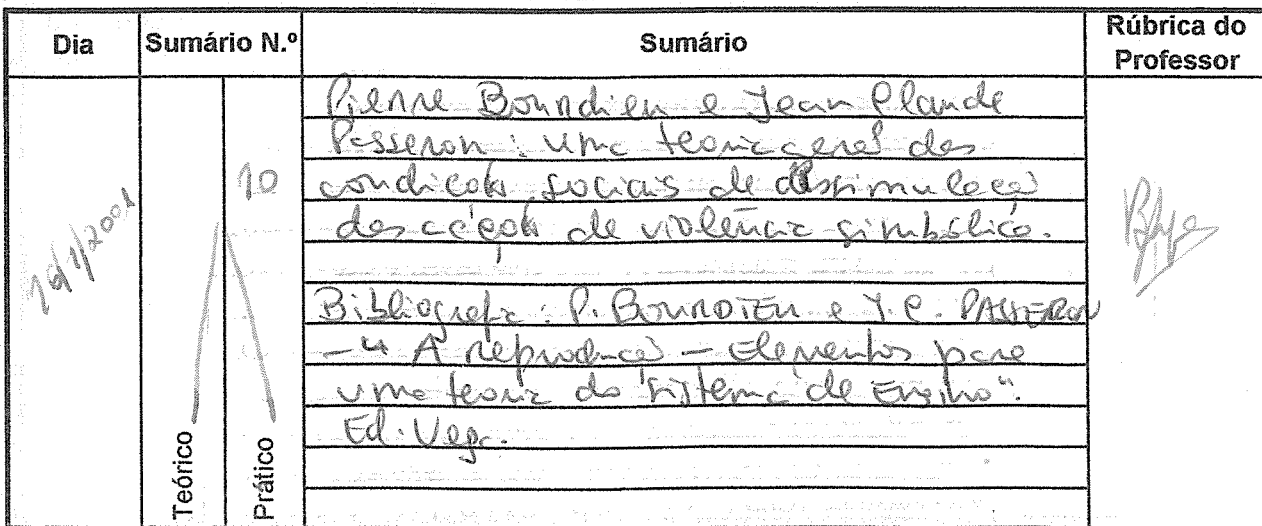 Dia Sumário N.º Sumário Rúbrica do Professor
16/1/2001
10
Pierre Bourdieu e Jean Claude
Passeron: uma teoria geral das
condições sociais de dissimulação
das acções de violência simbólica.
Bibliografia: P. BOURDIEU e J.C. PASSERON
– "A reprodução – Elementos para
uma teoria do sistema de Ensino".
Ed. Vega.
Teórico
Prático